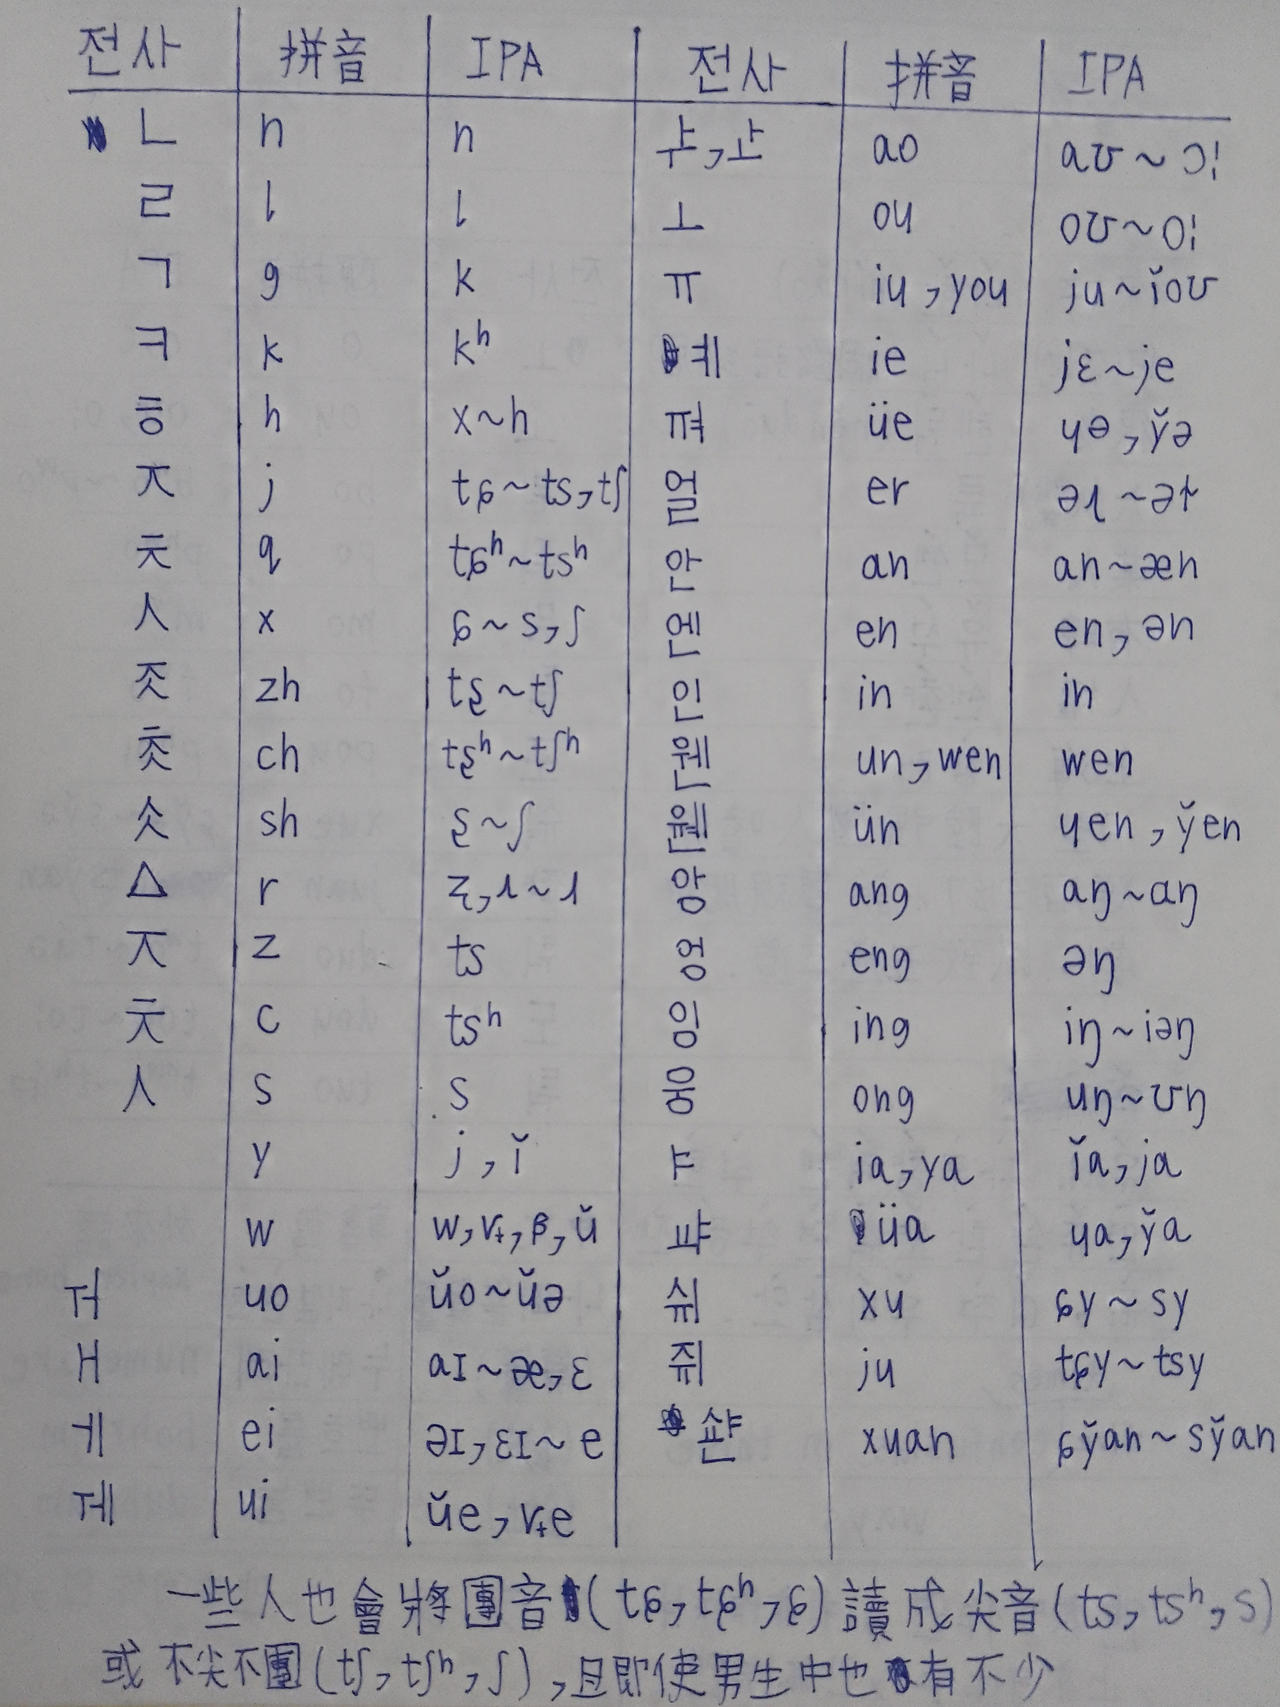 전사 拼音 IPA 전사 拼音 IPA
ㄴ n n ao aʊ ~ ɔː
ㄹ l l ㅗ ou oʊ~oː
ㄱ g k ㅠ iu,you ju~ĭoʊ
ㅋ k kʰ ㅖ ie jɛ~je
ㅎ h x~h ㆊ üe ɥə,y̆ə
ㅈ j tɕ~ts,tʃ 얼 er əɻ~ɚ
ㅊ q tɕʰ~tsʰ 안 an an~æn
ㅅ x ɕ~s,ʃ 엔 en en,ən
ㅈㅅ zh tʂ~tʃ 인 in in
ㅊㅅ ch tʂʰ~tʃʰ 웬 un,wen wen
ㅅㅅ sh ʂ~ʃ ün ɥen,y̆en
ㅿ r ʐ,ɹ~ɻ 앙 ang aŋ~ɑŋ
ㅈ z ts 엉 eng əŋ
ㅊ c tsʰ 잉 ing iŋ~iəŋ
ㅅ s s 웅 ong uŋ~ʊŋ
y j,ĭ ia,ya ĭa,ja
w w,ʋ,β,ŭ ㆇ üa ɥa,y̆a
ㅝ uo ŭo~ŭə 쉬 xu ɕy~sy
ㅐ ai aɪ~æ,ɛ 쥐 ju tɕy~tsy
ㅔ ei əɪ,ɛɪ~e xuan ɕy̆an~sy̆an
ㅞ ui ŭe,ʋe
一些人也會將團音(tɕ,tɕʰ,ɕ)讀成尖音(ts,tsʰ,s)
或不尖不團(tʃ,tʃʰ,ʃ),且即使男生中也有不少